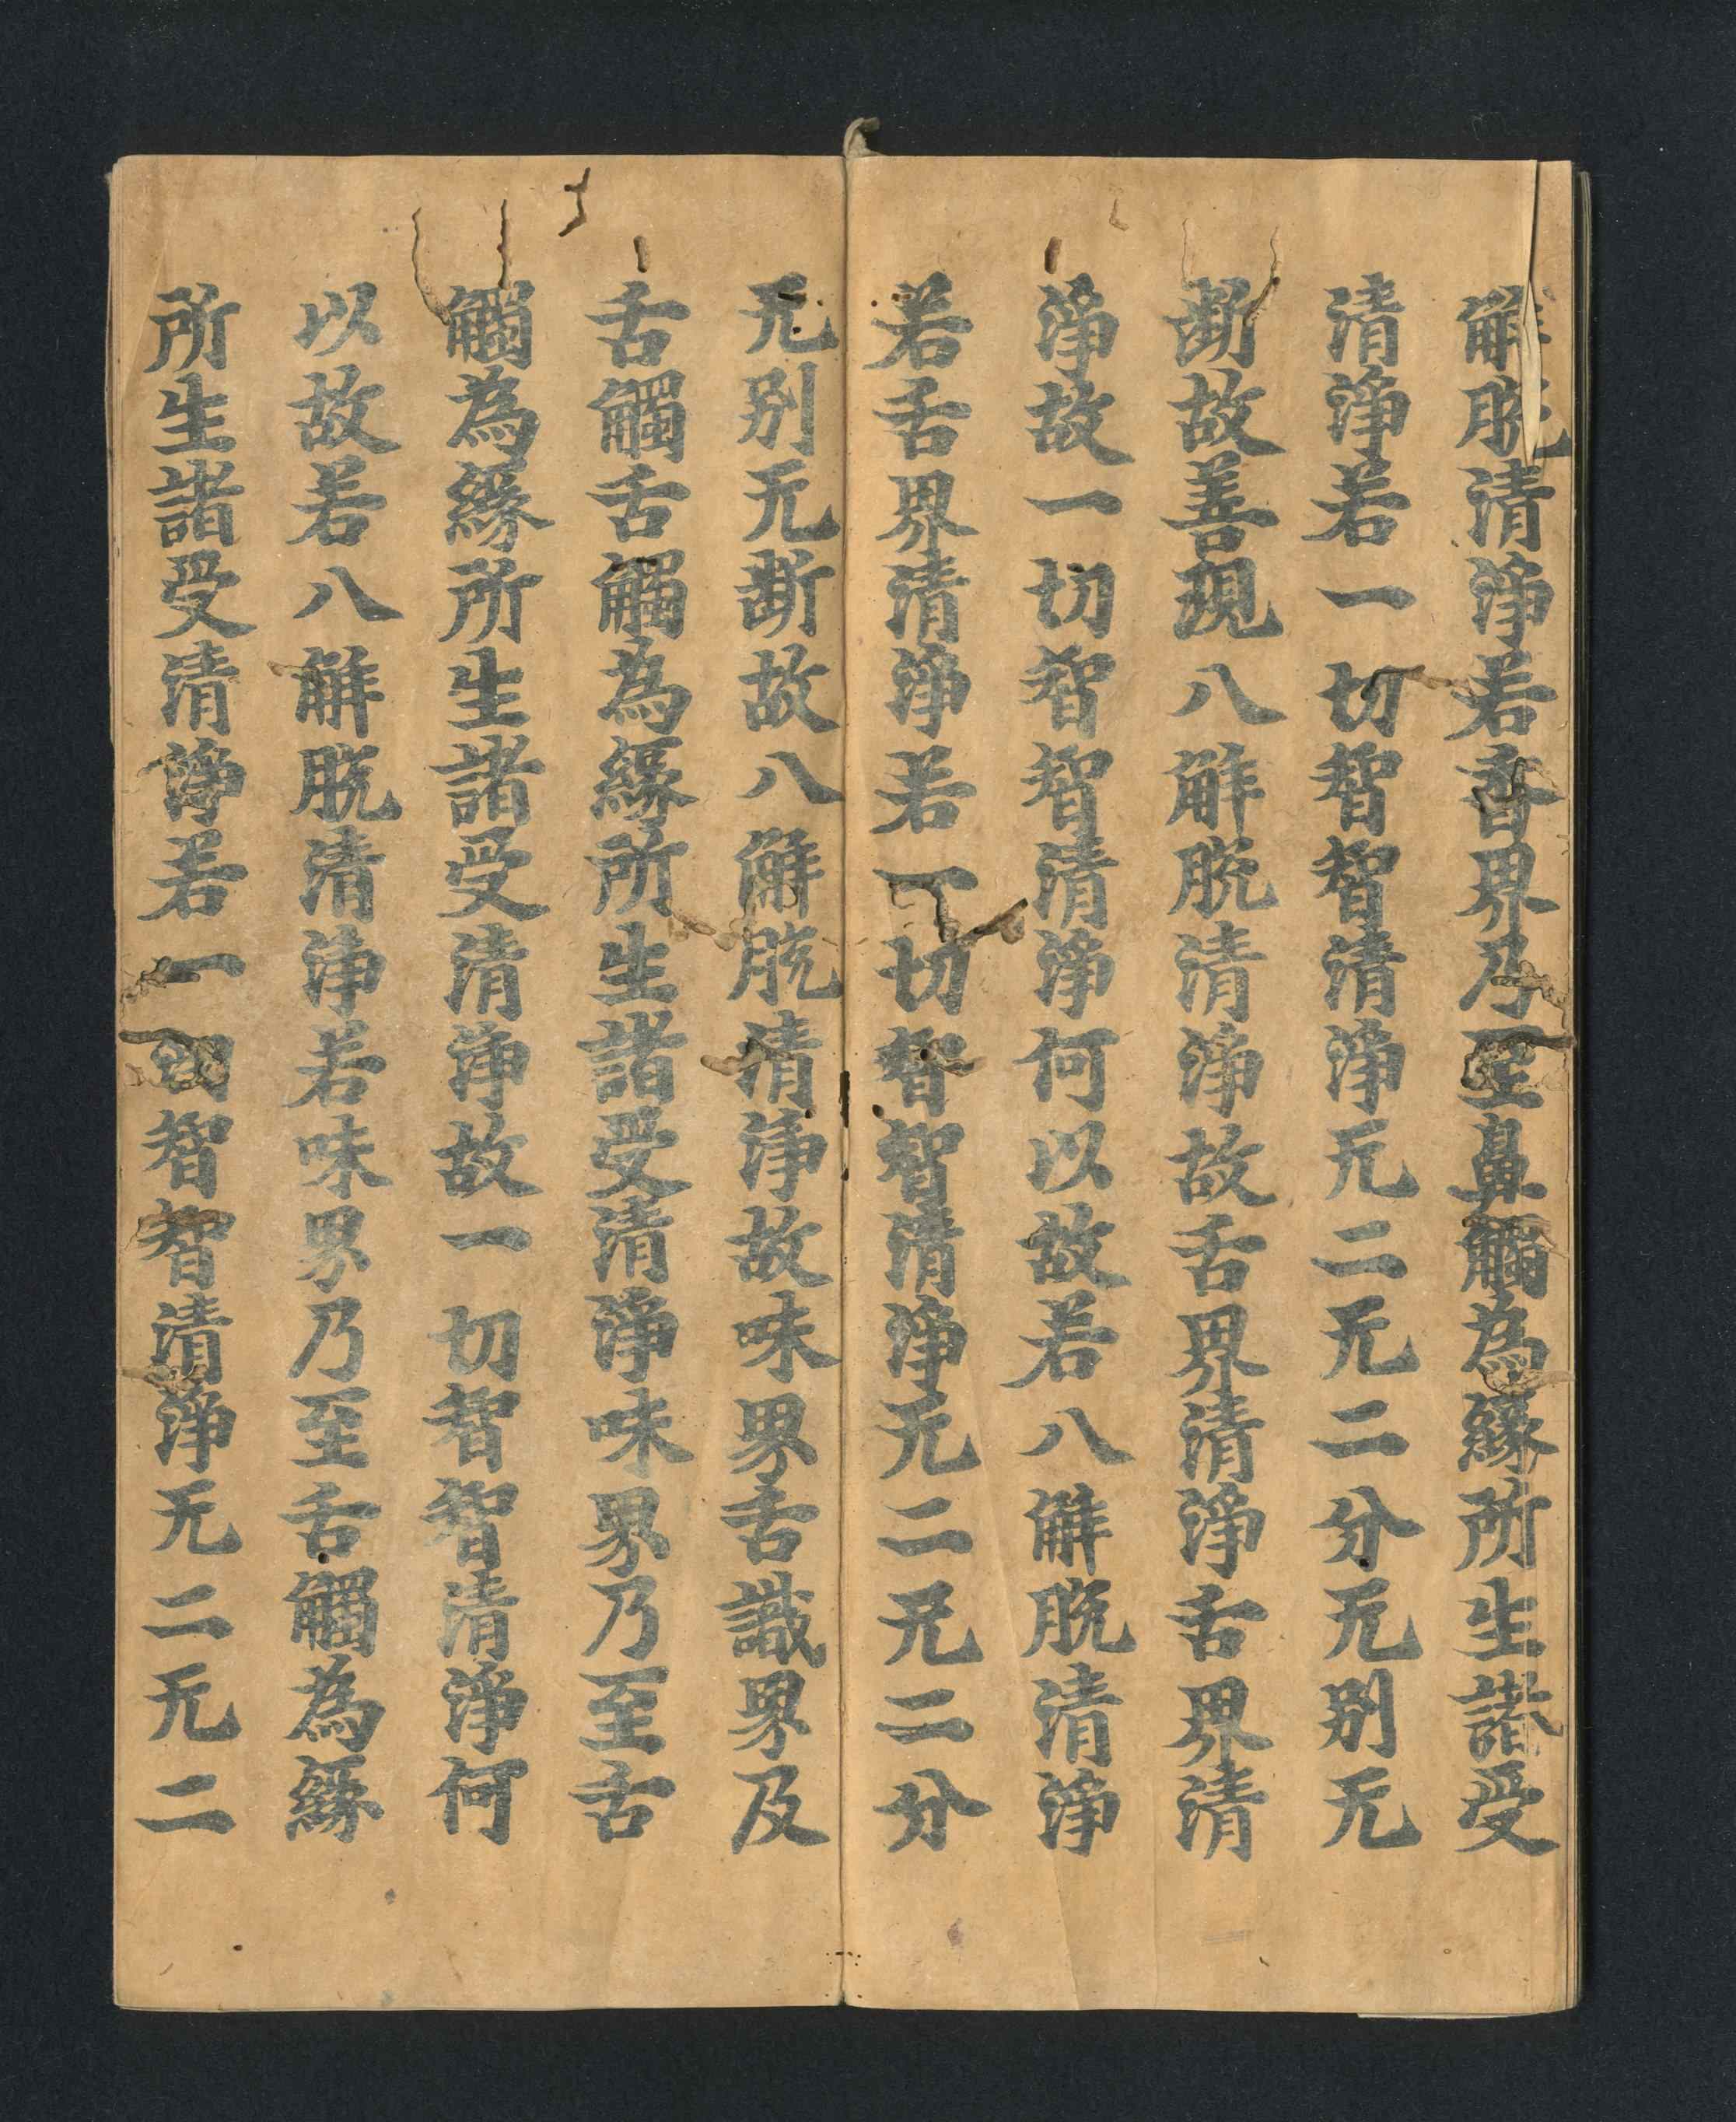 解脫清淨若香界乃至鼻觸為緣所生諸受
清淨若一切智智清淨无二无二分无別无
斷故善現八解脫清淨故舌界清淨舌界清
淨故一切智智清淨何以故若八解脫清淨
若舌界清淨若一切智智清淨无二无二分
无別无斷故八解脫清淨故味界舌識界及
舌觸舌觸為緣所生諸受清淨味界乃至舌
觸為緣所生諸受清淨故一切智智清淨何
以故若八解脫清淨若味界乃至舌觸為緣
所生諸受清淨若一切智智清淨无二无二